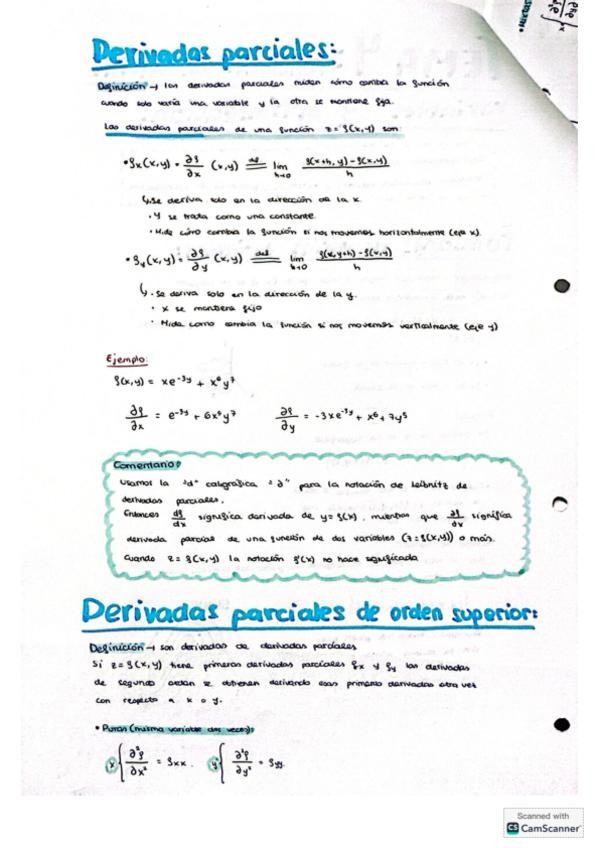 Derivadas parciales:
Definición → las derivadas parciales miden cómo cambia la función
cuando solo varía una variable y la otra se mantiene fija.
Las derivadas parciales de una función z = f(x,y) son:
• fx(x,y) = ∂f/∂x (x,y) def lim h→0 f(x+h, y) - f(x,y) / h
↳ Se deriva solo en la dirección de la x.
• Y se trata como una constante.
• Mide cómo cambia la función si nos movemos horizontalmente (eje x).
• fy(x,y) = ∂f/∂y (x,y) def lim h→0 f(x,y+h) - f(x,y) / h
↳ • Se deriva solo en la dirección de la y.
• x se mantiene fijo
• Mide como cambia la función si nos movemos verticalmente (eje y)
Ejemplo:
f(x,y) = xe^-3y + x^6 y^7
∂f/∂x = e^-3y + 6x^6 y^7 ∂f/∂y = -3xe^-3y + x^6 + 7y^5
Comentario:
Usamos la "d" caligráfica "∂" para la notación de Leibnitz de
derivadas parciales.
Entonces df/dx significa derivada de y = f(x), mientras que ∂f/∂x significa
derivada parcial de una función de dos variables (z = f(x,y)) o más.
Cuando z = f(x,y) la notación f'(x) no hace significada
Derivadas parciales de orden superior:
Definición → son derivadas de derivadas parciales
Si z = f(x,y) tiene primeras derivadas parciales fx y fy las derivadas
de segundo orden se obtienen derivando esas primeras derivadas otra vez
con respecto a x o y.
• Puras (misma variable dos veces):
x { ∂²f/∂x² = fxx. y { ∂²f/∂y² = fyy.
Scanned with
CS CamScanner